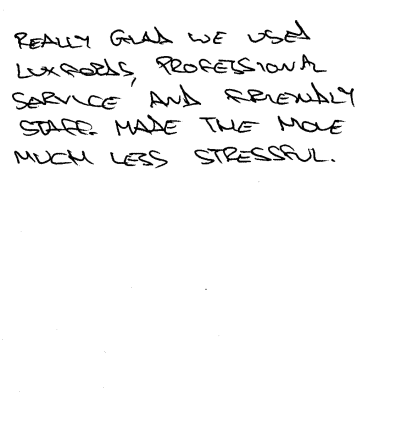 REALLY GLAD WE USED
LUXFORDS, PROFESSIONAL
SERVICE AND FRIENDLY
STAFF. MADE THE MOVE
MUCH LESS STRESSFUL.